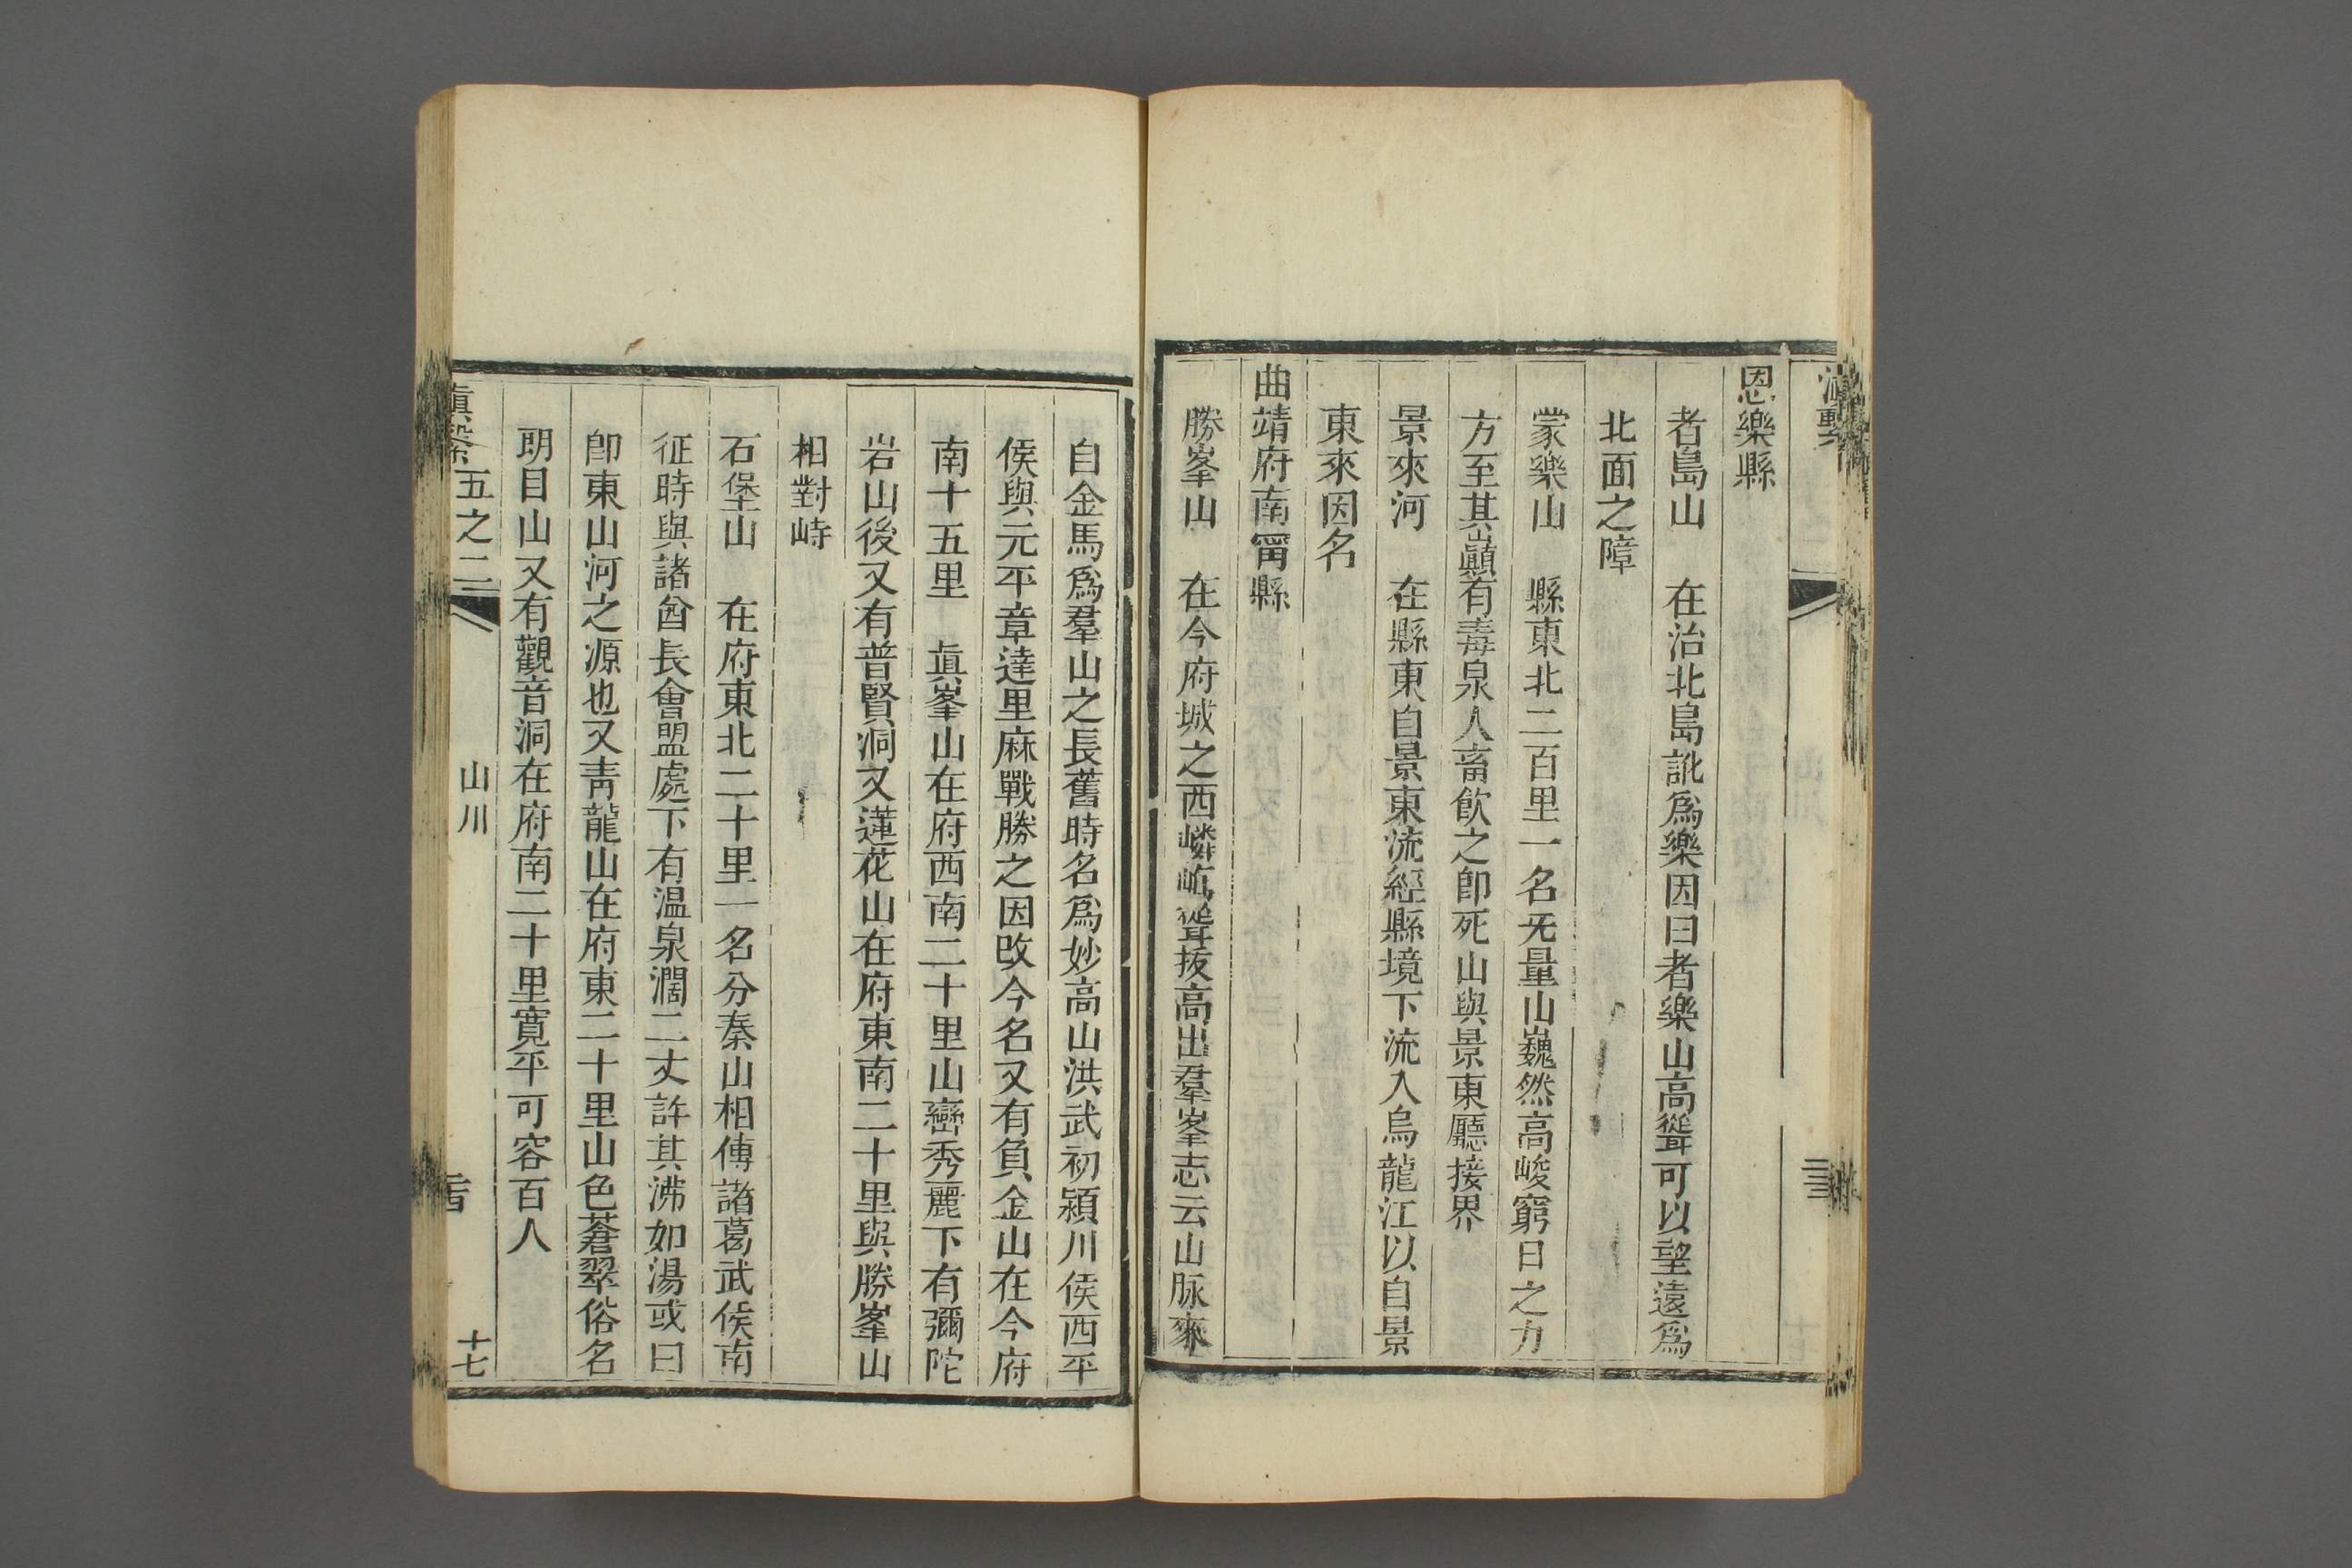 滇繫
恩樂縣
者島山　在治北島訛爲樂因曰者樂山高聳可以望遠爲
北面之障
蒙樂山　縣東北二百里一名无量山巍然高峻窮日之力
方至其巔有毒泉人畜飲之卽死山與景東廳接界
景來河　在縣東自景東流經縣境下流入烏龍江以自景
東來因名
曲靖府南甯縣
勝峯山　在今府城之西嶙峗聳拔高出羣峯志云山脉來
自金馬爲羣山之長舊時名爲妙高山洪武初潁川侯西平
侯與元平章達里麻戰勝之因改今名又有負金山在今府
南十五里　眞峯山在府西南二十里山巒秀麗下有彌陀
岩山後又有普賢洞又蓮花山在府東南二十里與勝峯山
相對峙
石堡山　在府東北二十里一名分秦山相傳諸葛武侯南
征時與諸酋長會盟處下有温泉濶二丈許其沸如湯或曰
卽東山河之源也又靑龍山在府東二十里山色蒼翠俗名
朙目山又有觀音洞在府南二十里寬平可容百人
滇繫 五之二
山川
十七